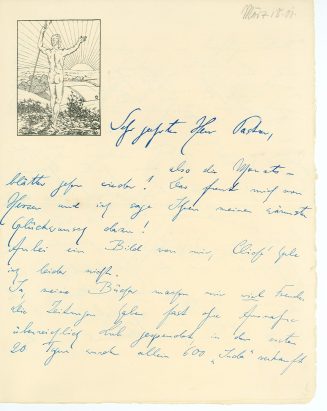 März 18.01.
Sehr geehrter Herr Pastor,
also die Monats-
blätter gehen wieder! Das freut mich von
Herzen und ich sage Ihnen meinen wärmsten
Glückwunsch dazu!
Anbei ein Bild von mir, Cliché habe
ich leider nicht.
Ja, meine Bücher machen mir viel Freude.
Die Zeitungen haben fast ohne Ausnahme
überreichlich Lob gespendet, in den ersten
20 Tagen wurden allein 600 " verkauft